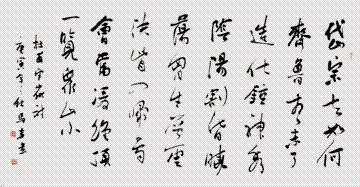 岱宗夫如何
齊魯青未了
造化鍾神秀
陰陽割昏曉
蕩胸生曾雲
決眥入歸鳥
會當凌絕頂
一覽眾山小
杜甫望嶽詩